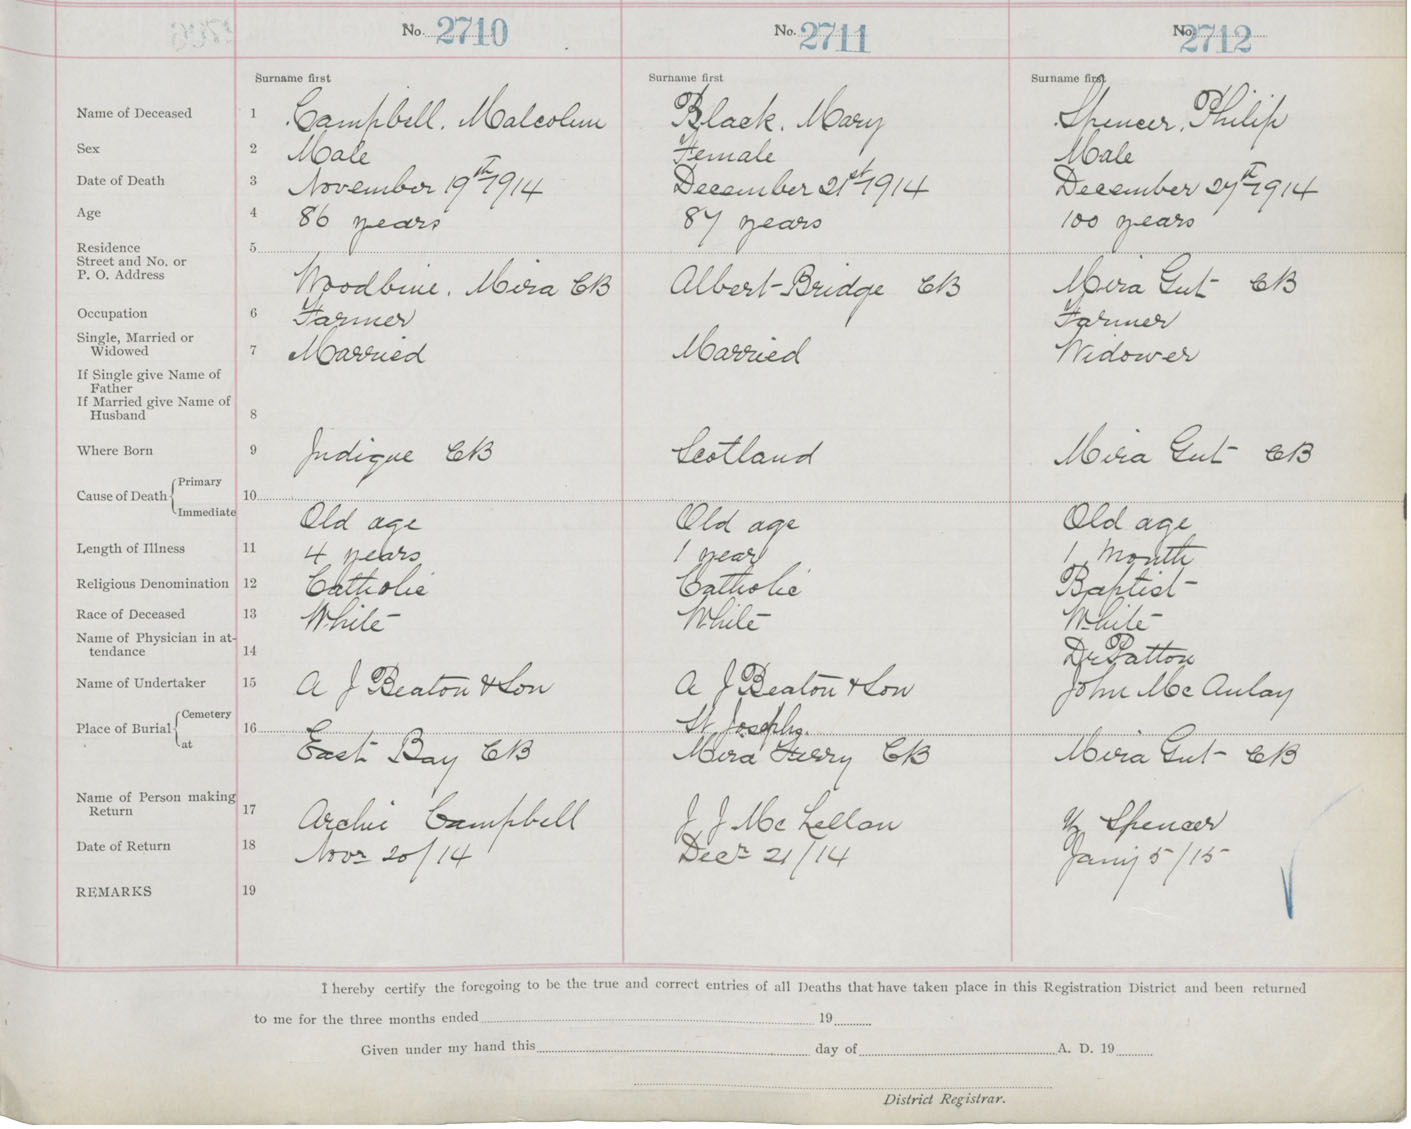 No. 2710 No. 2711 No. 2712
Surname first Surname first Surname first
Name of Deceased 1 Campbell, Malcolm Black, Mary Spencer, Philip
Sex 2 Male Female Male
Date of Death 3 November 19th 1914 December 21st 1914 December 27th 1914
Age 4 86 years 87 years 100 years
Residence 5
Street and No. or
P. O. Address Woodbine, Mira CB Albert-Bridge CB Mira Gut CB
Occupation 6 Farmer Farmer
Single, Married or
Widowed 7 Married Married Widower
If Single give Name of
Father
If Married give Name of
Husband 8
Where Born 9 Judique CB Scotland Mira Gut CB
Cause of Death Primary 10
Immediate Old age Old age Old age
Length of Illness 11 4 years 1 year 1 month
Religious Denomination 12 Catholic Catholic Baptist
Race of Deceased 13 White White White
Name of Physician in at-
tendance 14 Dr Patton
Name of Undertaker 15 A J Beaton & Son A J Beaton & Son John McAulay
Place of Burial Cemetery 16 St Josephs.
at East Bay CB Mira Ferry CB Mira Gut CB
Name of Person making
Return 17 Archie Campbell J J McLellan Spencer
Date of Return 18 Novr 20/14 Decr 21/14 Jany 5/15
REMARKS 19
I hereby certify the foregoing to be the true and correct entries of all Deaths that have taken place in this Registration District and been returned
to me for the three months ended 19
Given under my hand this day of A. D. 19
District Registrar.